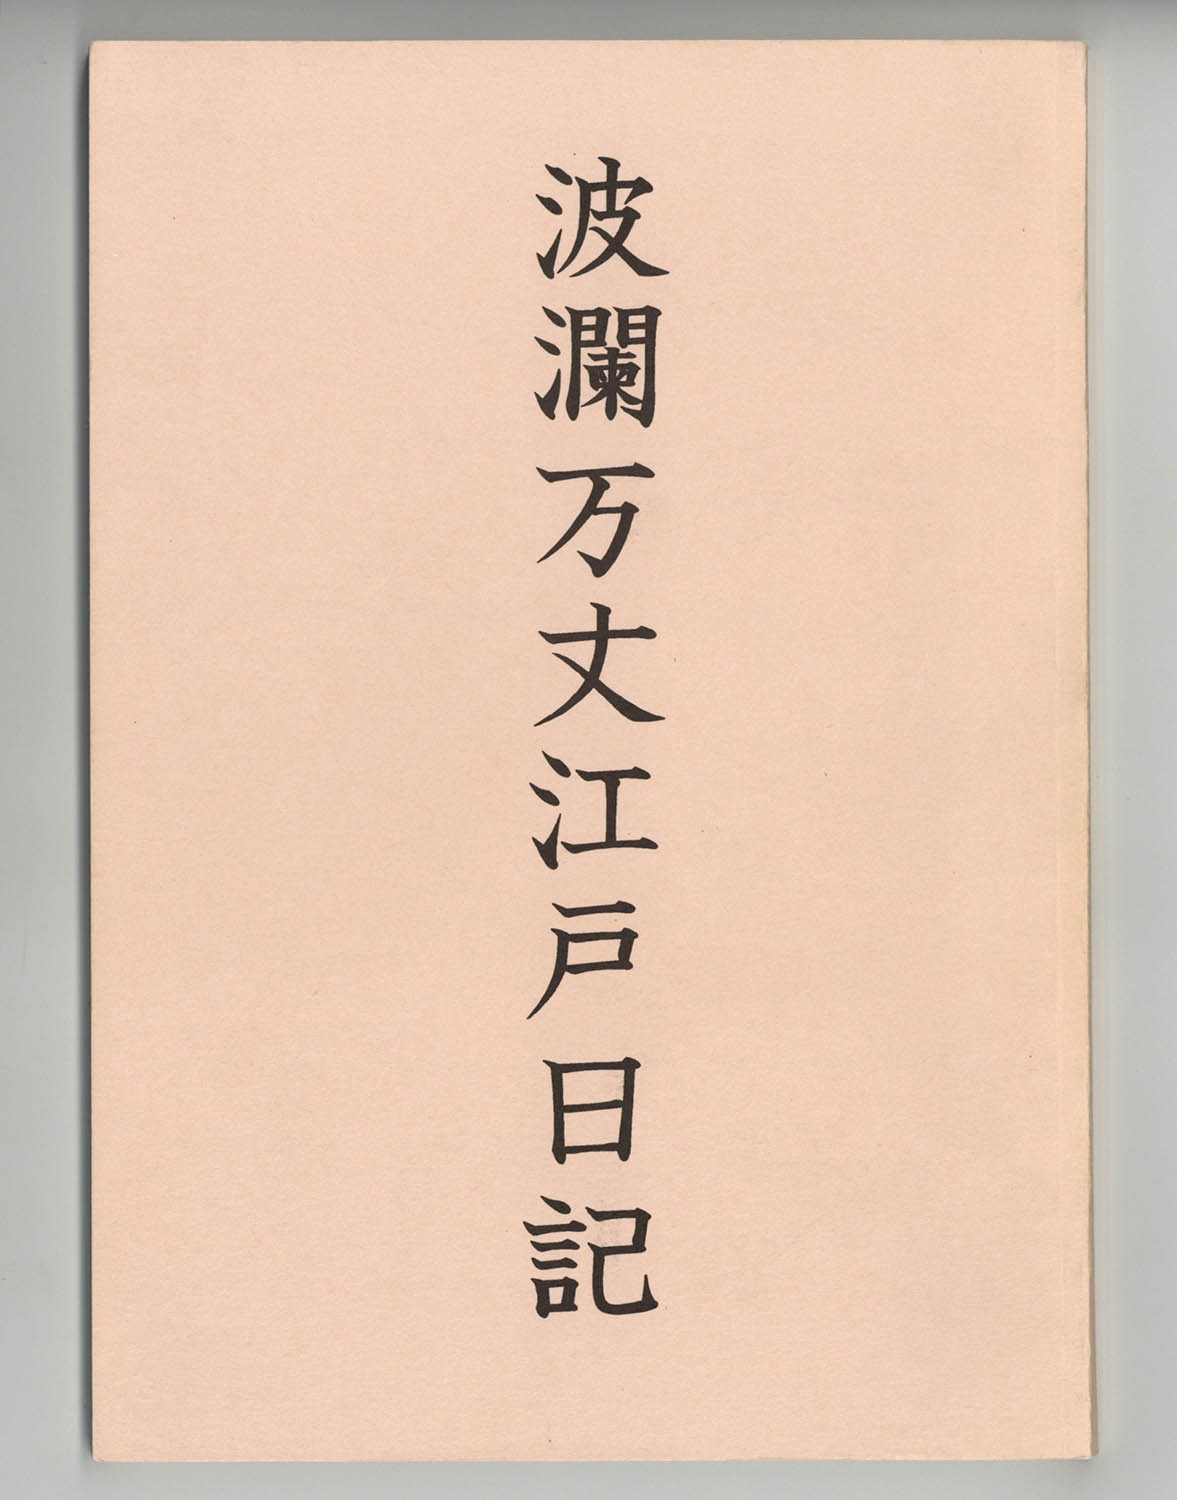 波瀾万丈江戸日記